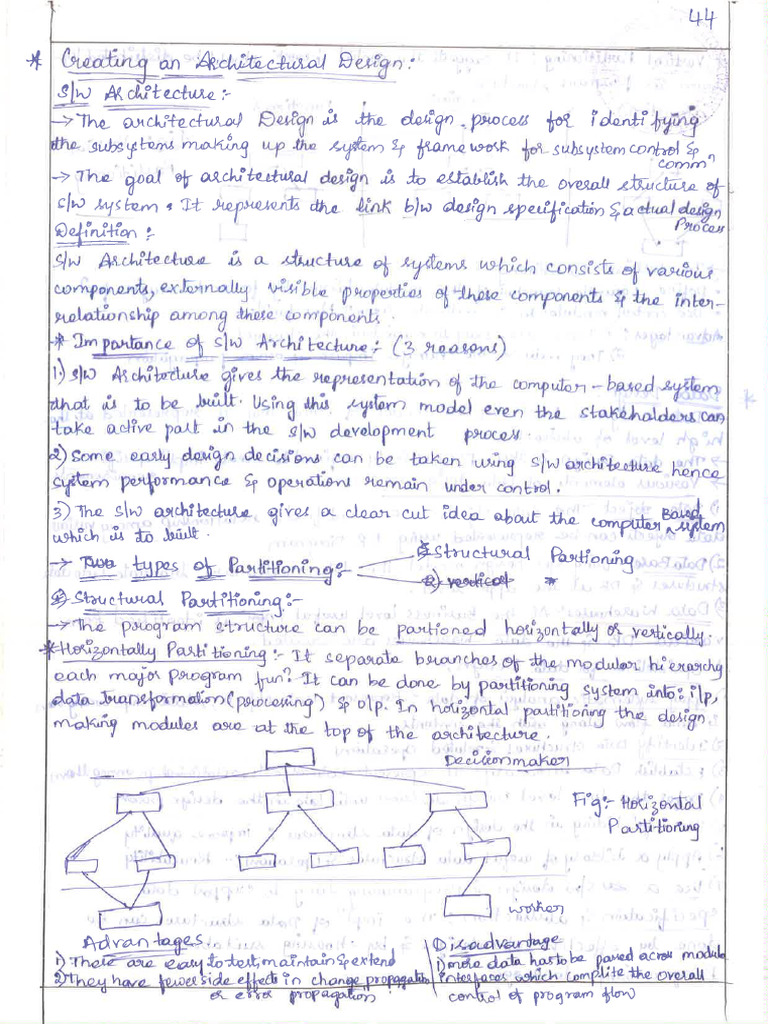 44
* Creating an Architectural Design:
S/W Architecture:-
→ The architectural Design is the design process for identifying
the subsystems making up the system & framework for subsystem control &
commⁿ
→ The goal of architectural design is to establish the overall structure of
S/W system. It represents the link b/w design specification & actual design
Process
Definition:-
S/W Architecture is a structure of systems which consists of various
components, externally visible properties of these components & the inter-
relationship among these component.
* Importance of S/W Architecture:- (3 reasons)
1.) S/W Architecture gives the representation of the computer-based system
that is to be built. Using this system model even the stakeholders can
take active part in the S/W development process
2) Some early design decisions can be taken using S/W architecture hence
system performance & operations remain under control.
3) The S/W architecture gives a clear cut idea about the computer Based system
which is to built.
→ Two types of Partitioning:-
Structural Partioning
2) vertical *
Structural Partitioning:-
→ The program structure can be partioned horizontally or vertically.
* Horizontally Partitioning:- It separate branches of the modular hierarchy
each major program funⁿ. It can be done by partitioning system into: i/p,
data transformation (processing) & o/p. In horizontal partitioning the design
making modules are at the top of the architecture.
Decision maker
Fig:- Horizontal
Partitioning
worker
Advantages
1) These are easy to test, maintain & extend
2) They have fewer side effects in change propagation
or error propagation
Disadvantage
1) more data has to be passed across module
interfaces which complite the overall
control of program flow